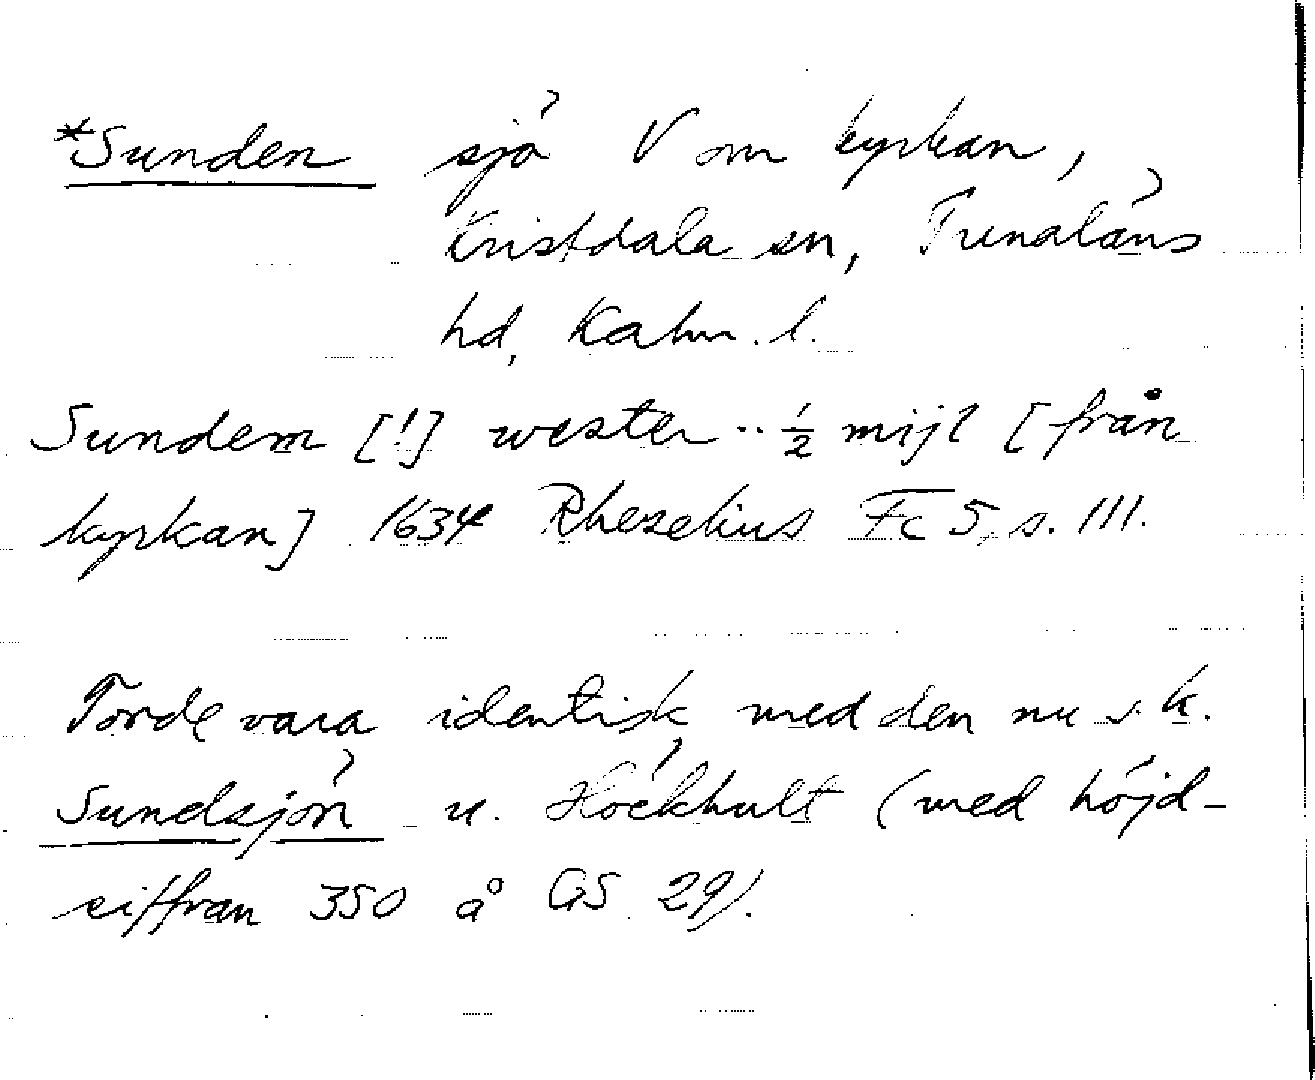 *Sunden sjö V om kyrkan,
Kristdala sn, Tunaläns
hd, Kalm. l.
Sundem [!] wester .. ½ mijl [från
kyrkan] 1634 Rhezelius Fc 5, s. 111.
Torde vara identisk med den nu s.k.
Sundsjön u. Höckhult (med höjd-
siffran 350 å GS 29).